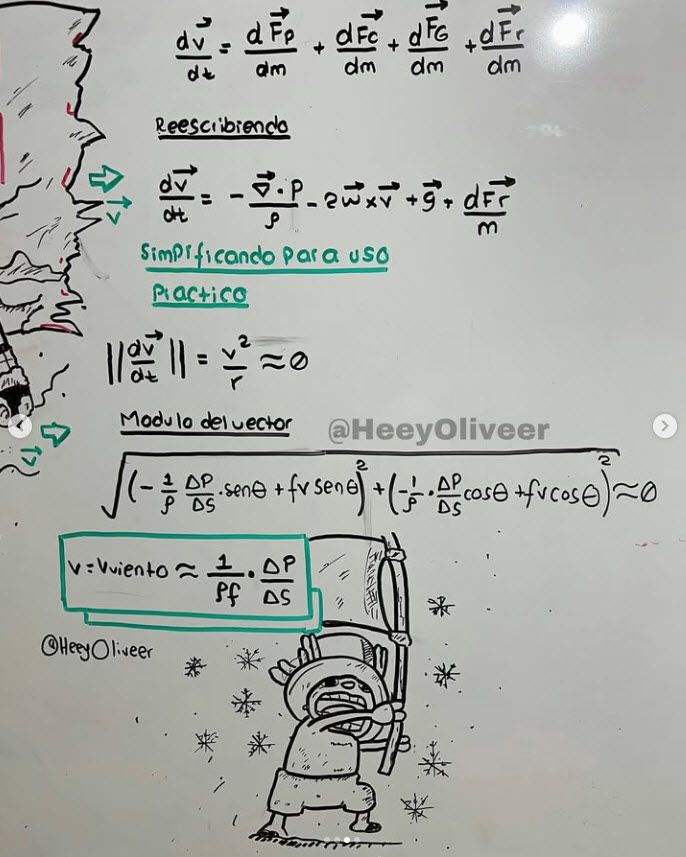 dv⃗/dt = dF⃗p/dm + dF⃗c/dm + dF⃗G/dm + dF⃗r/dm
Reescribiendo
dv⃗/dt = - ∇⃗·P/ρ - 2w⃗×v⃗ + g⃗ + dF⃗r/m
v⃗
Simplificando para uso
Practico
||dv⃗/dt|| = v²/r ≈ 0
Modulo del vector
@HeeyOliveer
v⃗
√(-1/ρ ΔP/ΔS · senθ + fv senθ)² + (-1/ρ · ΔP/ΔS cosθ + fv cosθ)² ≈ 0
v = Vviento ≈ 1/ρf · ΔP/ΔS
@HeeyOliveer